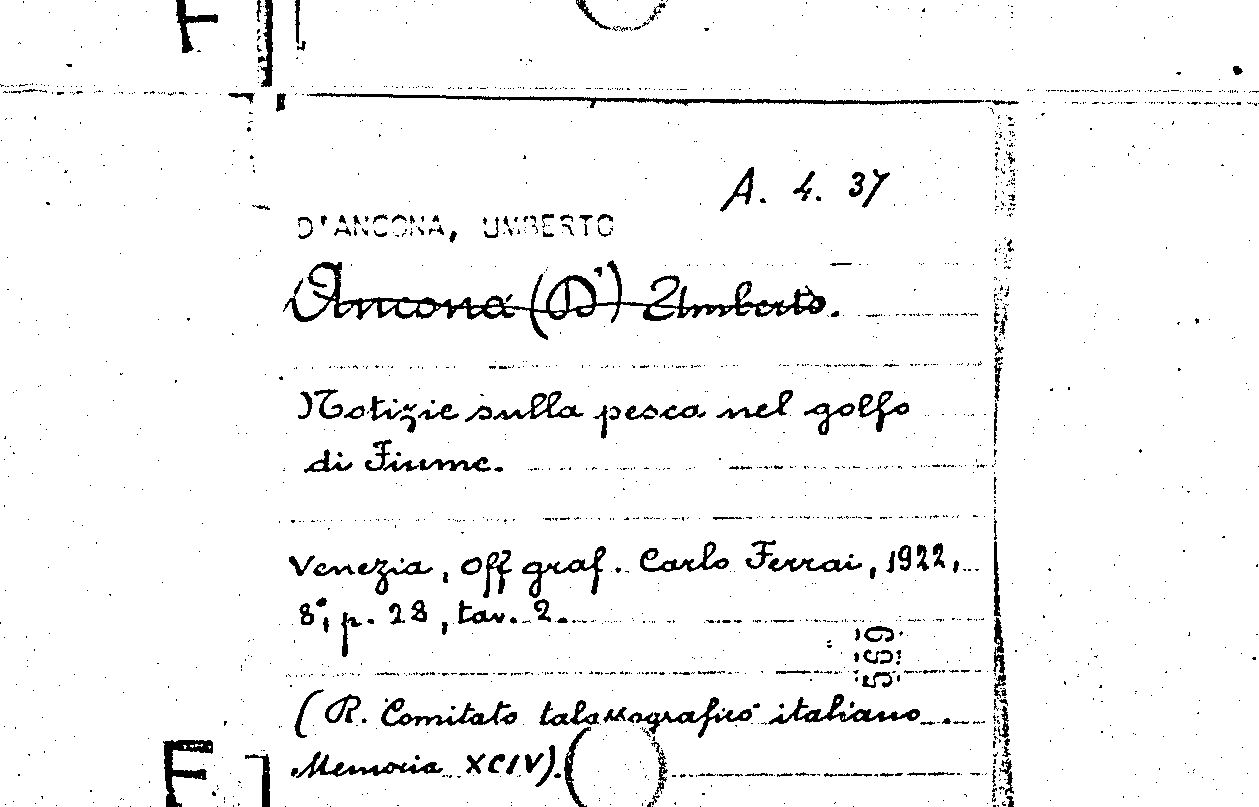 A. 4. 37
D'ANCONA, UMBERTO
Ancona (D') Umberto.
Notizie sulla pesca nel golfo
di Fiume.
Venezia, Off graf. Carlo Ferrai, 1922,
8°, p. 28, tav. 2.
569
(R. Comitato talassografico italiano.
Memoria XCIV).